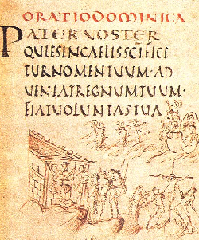 ORATIO DOMINICA
PATER NOSTER
QUI ES IN CAELIS SCIFICE
TUR NOMEN TUUM · AD
UENIAT REGNUM TUUM ·
FIAT UOLUNTAS TUA